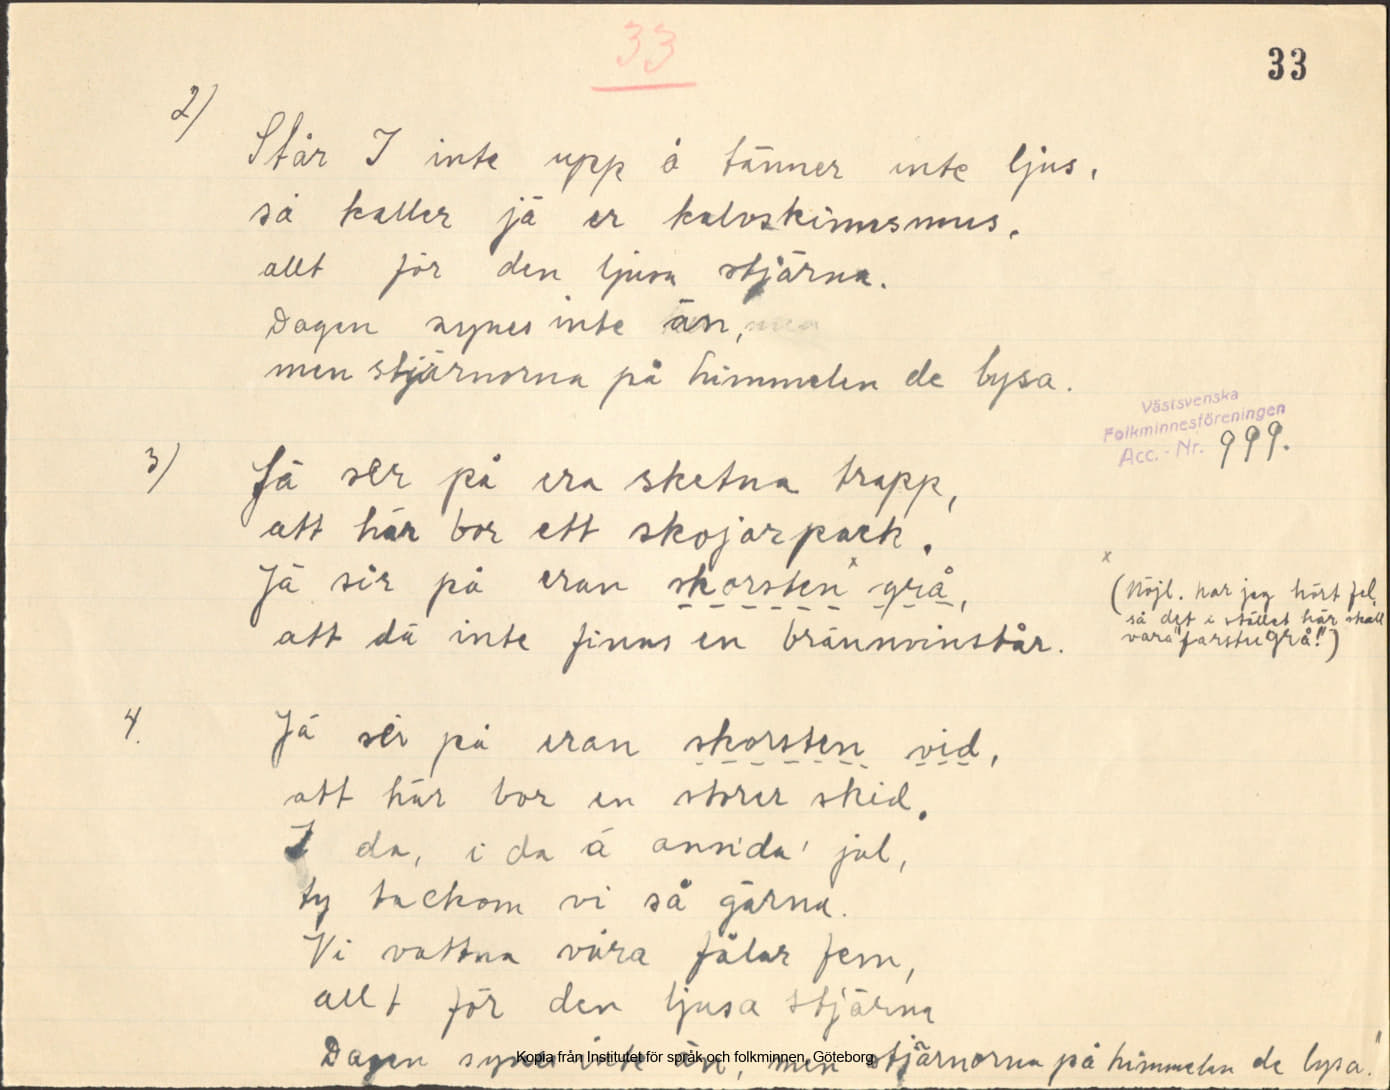 33
33
2)
Står I inte upp å tänner inte ljus,
så kaller jä er kalvskinnsmus.
allt för den ljusa stjärna.
Dagen synes inte än,
men stjärnorna på himmelen de lysa.
Västsvenska
Folkminnesföreningen
Acc.-Nr. 999.
3)
Jä ser på era sketna trapp,
att här bor ett skojarpack.
Jä sir på eran skorsten x grå,
att dä inte finns en brännvinstår.
x
(Möjl. har jag hört fel,
så det i stället här skall
vara "farstu grå!")
4.
Jä sér på eran skorsten vid,
att här bor en storer skid.
I da, i da å annda' jul,
ty tackom vi så gärna.
Vi vattna våra fålar fem,
allt för den ljusa stjärna
Dagen synes inte än, men stjärnorna på himmelen de lysa."
Kopia från Institutet för språk och folkminnen, Göteborg